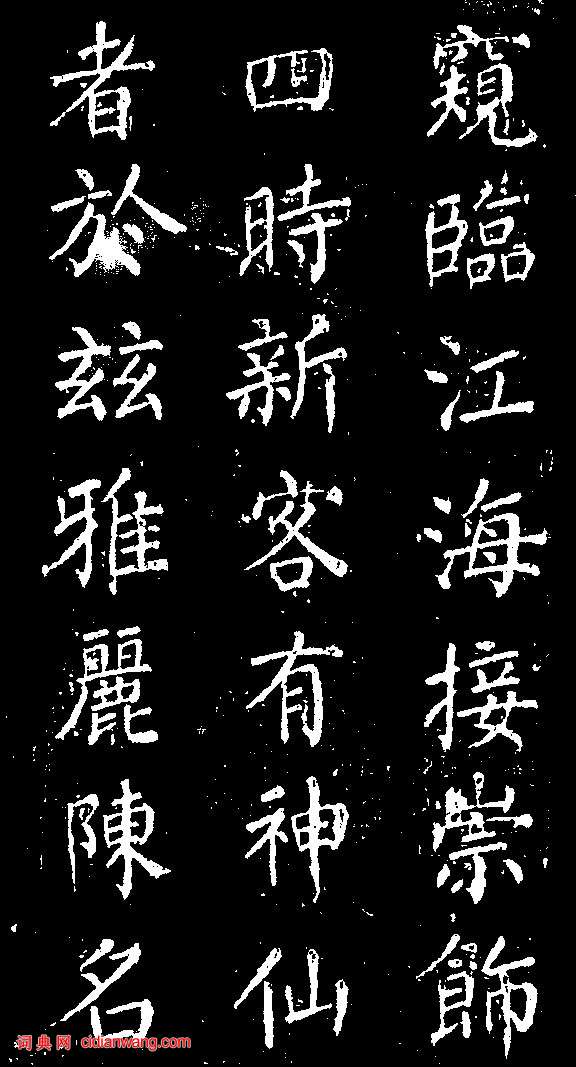 窺臨江海接崇飾
四時新客有神仙
者於玆雅麗陳名
词典网 cidianwang.com